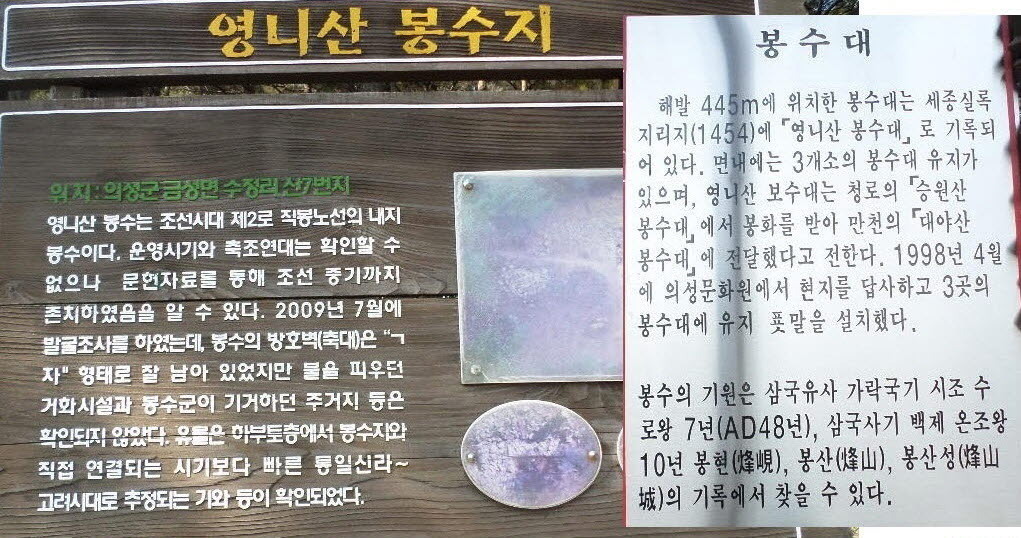 영니산 봉수지
위 치 : 의성군 금성면 수정리 산7번지
영니산 봉수는 조선시대 제2로 직봉노선의 내지
봉수이다. 운영시기와 축조연대는 확인할 수
없으나 문헌자료를 통해 조선 중기까지
존치하였음을 알 수 있다. 2009년 7월에
발굴조사를 하였는데, 봉수의 방호벽(축대)은 "ㄱ
자" 형태로 잘 남아 있었지만 불을 피우던
거화시설과 봉수군이 기거하던 주거지 등은
확인되지 않았다. 유물은 하부토층에서 봉수지와
직접 연결되는 시기보다 빠른 통일신라~
고려시대로 추정되는 기와 등이 확인되었다.
봉 수 대
해발 445m에 위치한 봉수대는 세종실록
지리지(1454)에 「영니산 봉수대」로 기록되
어 있다. 면내에는 3개소의 봉수대 유지가
있으며, 영니산 보수대는 청로의 「승원산
봉수대」에서 봉화를 받아 만천의 「대야산
봉수대」에 전달했다고 전한다. 1998년 4월
에 의성문화원에서 현지를 답사하고 3곳의
봉수대에 유지 푯말을 설치했다.
봉수의 기원은 삼국유사 가락국기 시조 수
로왕 7년(AD48년), 삼국사기 백제 온조왕
10년 봉현(烽峴), 봉산(烽山), 봉산성(烽山
城)의 기록에서 찾을 수 있다.